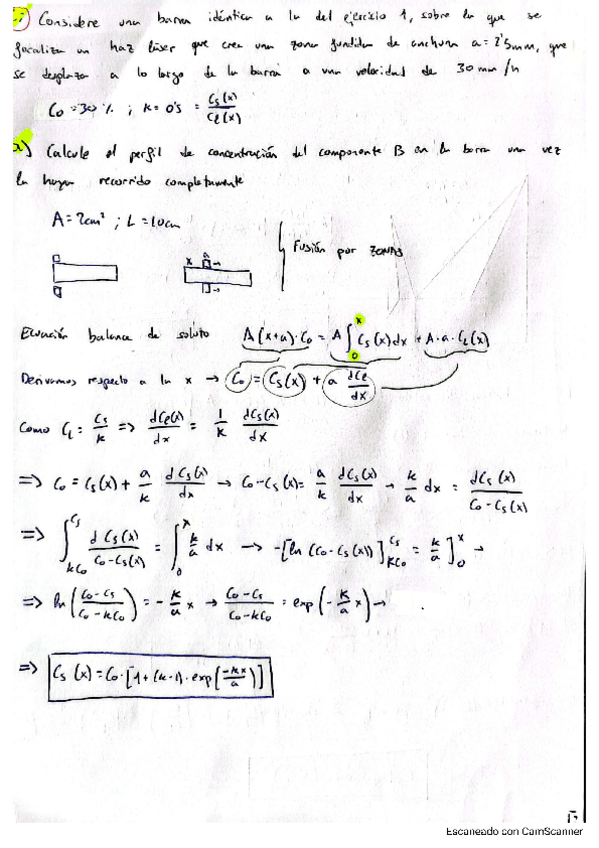 Considere una barra idéntica a la del ejercicio 1, sobre la que se
focaliza un haz láser que crea una zona fundida de anchura a = 2'5mm, que
se desplaza a lo largo de la barra a una velocidad de 30 mm/h
C₀ = 30 % ; k = 0's = Cs(x)/Cl(x)
a) Calcule el perfil de concentración del componente B en la barra una vez
la hayan recorrido completamente
A = 2cm² ; L = 10cm
x a
Fusión por ZONAS
Ecuación balance de soluto A(x+a)·C₀ = A∫₀ˣ Cs(x)dx + A·a·Cl(x)
Derivamos respecto a la x → C₀ = Cs(x) + a dCl/dx
Como Cl = Cs/k => dCl(x)/dx = 1/k dCs(x)/dx
=> C₀ = Cs(x) + a/k dCs(x)/dx → C₀-Cs(x) = a/k dCs(x)/dx → k/a dx = dCs(x)/(C₀-Cs(x))
=> ∫_{kC₀}^{Cs} dCs(x)/(C₀-Cs(x)) = ∫₀ˣ k/a dx → -[ln(C₀-Cs(x))]_{kC₀}^{Cs} = k/a ]₀ˣ →
=> ln((C₀-Cs)/(C₀-kC₀)) = -k/a x → (C₀-Cs)/(C₀-kC₀) = exp(-k/a x) →
=> Cs(x) = C₀·[1+(k-1)·exp(-kx/a)]
Escaneado con CamScanner